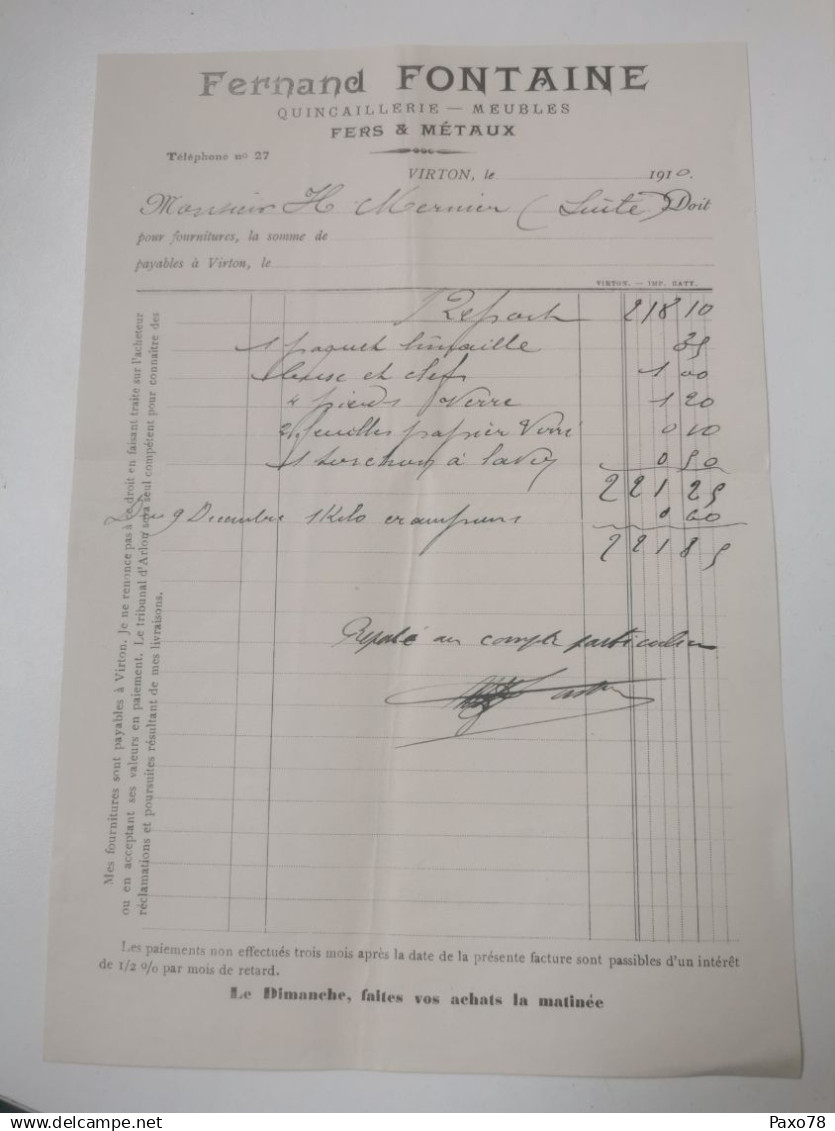 Fernand FONTAINE
QUINCAILLERIE — MEUBLES
FERS & MÉTAUX
Téléphone nº 27
VIRTON, le 1910.
Monsieur H Mernier (Suite) Doit
pour fournitures, la somme de
payables à Virton, le
VIRTON. — IMP. NATT.
Report 218 10
1 paquet limaille 35
et clef 1 00
4 pieds Verre 1 20
2 feuilles papier Verré 0 10
1 torchon à laver 0 50
221 25
Du 9 Decembre 1 Kilo crampons 0 60
221 85
Reporté au compte particulier
Mes fournitures sont payables à Virton. Je ne renonce pas à ce droit en faisant traite sur l'acheteur
ou en acceptant ses valeurs en paiement. Le tribunal d'Arlon sera seul compétent pour connaître des
réclamations et poursuites résultant de mes livraisons.
Les paiements non effectués trois mois après la date de la présente facture sont passibles d'un intérêt
de 1/2 % par mois de retard.
Le Dimanche, faites vos achats la matinée
Paxo78